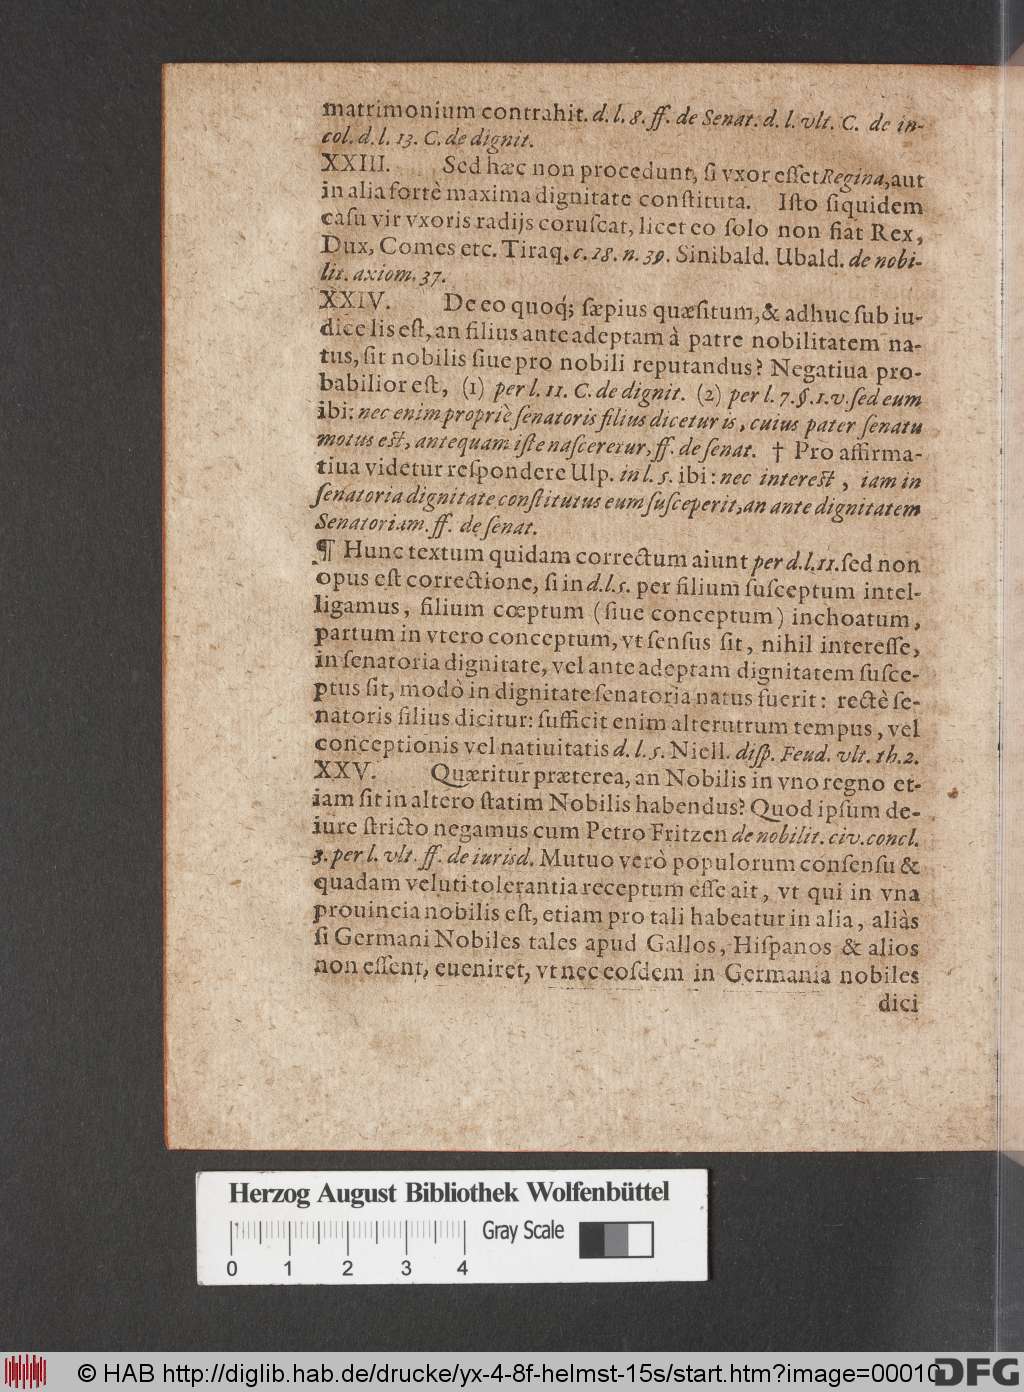 matrimonium contrahit. d. l. 8. ff. de Senat. d. l. vlt. C. de in-
col. d. l. 13. C. de dignit.
XXIII. Sed hæc non procedunt, ſi vxor eſſet Regina, aut
in alia fortè maxima dignitate conſtituta. Iſto ſiquidem
caſu vir vxoris radijs coruſcat, licet eo ſolo non fiat Rex,
Dux, Comes etc. Tiraq. c. 18. n. 39. Sinibald. Ubald. de nobi-
lit. axiom. 37.
XXIV. De eo quoq; ſæpius quæſitum, & adhuc ſub iu-
dice lis eſt, an filius ante adeptam à patre nobilitatem na-
tus, ſit nobilis ſiue pro nobili reputandus? Negatiua pro-
babilior eſt, (1) per l. 11. C. de dignit. (2) per l. 7. §. 1. v. ſed eum
ibi: nec enim propriè ſenatoris filius dicetur is, cuius pater ſenatu
motus eſt, antequam iſte naſceretur, ff. de ſenat. † Pro affirma-
tiua videtur reſpondere Ulp. in l. 5. ibi: nec intereſt, iam in
ſenatoria dignitate conſtitutus eum ſuſceperit, an ante dignitatem
Senatoriam. ff. de ſenat.
¶ Hunc textum quidam correctum aiunt per d. l. 11. ſed non
opus eſt correctione, ſi in d. l. 5. per filium ſuſceptum intel-
ligamus, filium cœptum (ſiue conceptum) inchoatum,
partum in vtero conceptum, vt ſenſus ſit, nihil intereſſe,
in ſenatoria dignitate, vel ante adeptam dignitatem ſuſce-
ptus ſit, modò in dignitate ſenatoria natus fuerit: rectè ſe-
natoris filius dicitur: ſufficit enim alterutrum tempus, vel
conceptionis vel natiuitatis d. l. 5. Niell. diſp. Feud. vlt. th. 2.
XXV. Quæritur præterea, an Nobilis in vno regno et-
iam ſit in altero ſtatim Nobilis habendus? Quod ipſum de-
iure ſtricto negamus cum Petro Fritzen de nobilit. civ. concl.
3. per l. vlt. ff. de iurisd. Mutuo verò populorum conſenſu &
quadam veluti tolerantia receptum eſſe ait, vt qui in vna
prouincia nobilis eſt, etiam pro tali habeatur in alia, aliàs
ſi Germani Nobiles tales apud Gallos, Hiſpanos & alios
non eſſent, eueniret, vt nec eoſdem in Germania nobiles
dici
Herzog August Bibliothek Wolfenbüttel
Gray Scale
0 1 2 3 4
© HAB http://diglib.hab.de/drucke/yx-4-8f-helmst-15s/start.htm?image=00010
DFG